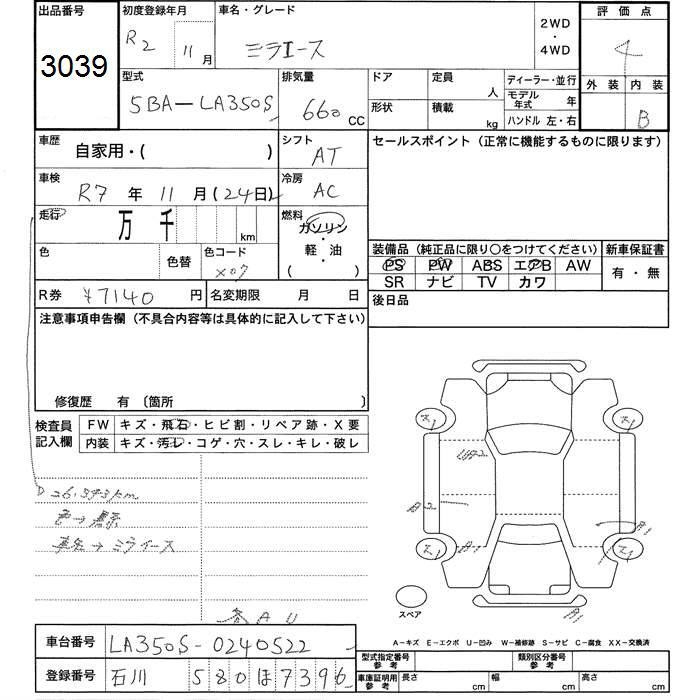 出品番号
3039
初度登録年月
R2 11月
車名・グレード
ミラエース
2WD
・
4WD
評価点
4
外装 内装
B
型式
5BA-LA350S
排気量
660 CC
ドア
形状
定員 人
積載 kg
ディーラー・並行
モデル年式 年
ハンドル 左・右
車歴
自家用・( )
シフト
AT
セールスポイント (正常に機能するものに限ります)
車検
R7年11月(24日)
冷房
AC
走行
万 千 km
燃料
ガソリン
・
軽・油
( )
色
色替
色コード
X07
装備品 (純正品に限り○をつけてください)
新車保証書
PS PW ABS エアB AW
SR ナビ TV カワ
有・無
R券 ¥7140円
名変期限 月 日
後日品
注意事項申告欄 (不具合内容等は具体的に記入して下さい)
修復歴 有 〔箇所 〕
検査員
記入欄
FW キズ・飛石・ヒビ割・リペア跡・X要
内装 キズ・汚レ・コゲ・穴・スレ・キレ・破レ
26,393km
色→黒
車名→ミライース
U2
B2
スペア
A-キズ E-エクボ U-凹み W-補修跡 S-サビ C-腐食 XX-交換済
車台番号
LA350S-0240522
登録番号
石川 580 ほ 7396
型式指定番号
参考
類別区分番号
参考
車庫証明用
参考
長さ cm
幅 cm
高さ cm